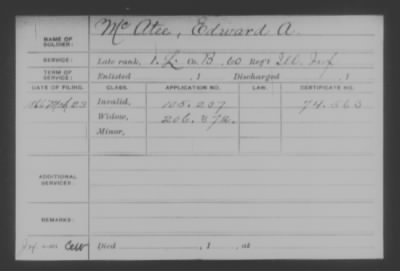 NAME OF SOLDIER: McAtee, Edward A.
SERVICE: Late rank, 1. L. Co. B. 60 Reg't Ill. Inf.
TERM OF SERVICE: Enlisted , 1 Discharged , 1
DATE OF FILING. CLASS. APPLICATION NO. LAW. CERTIFICATE NO.
1866 Mch 23 Invalid, 105.237 74.563
Widow, 206.872.
Minor,
ADDITIONAL SERVICES:
REMARKS:
Died , 1 , at